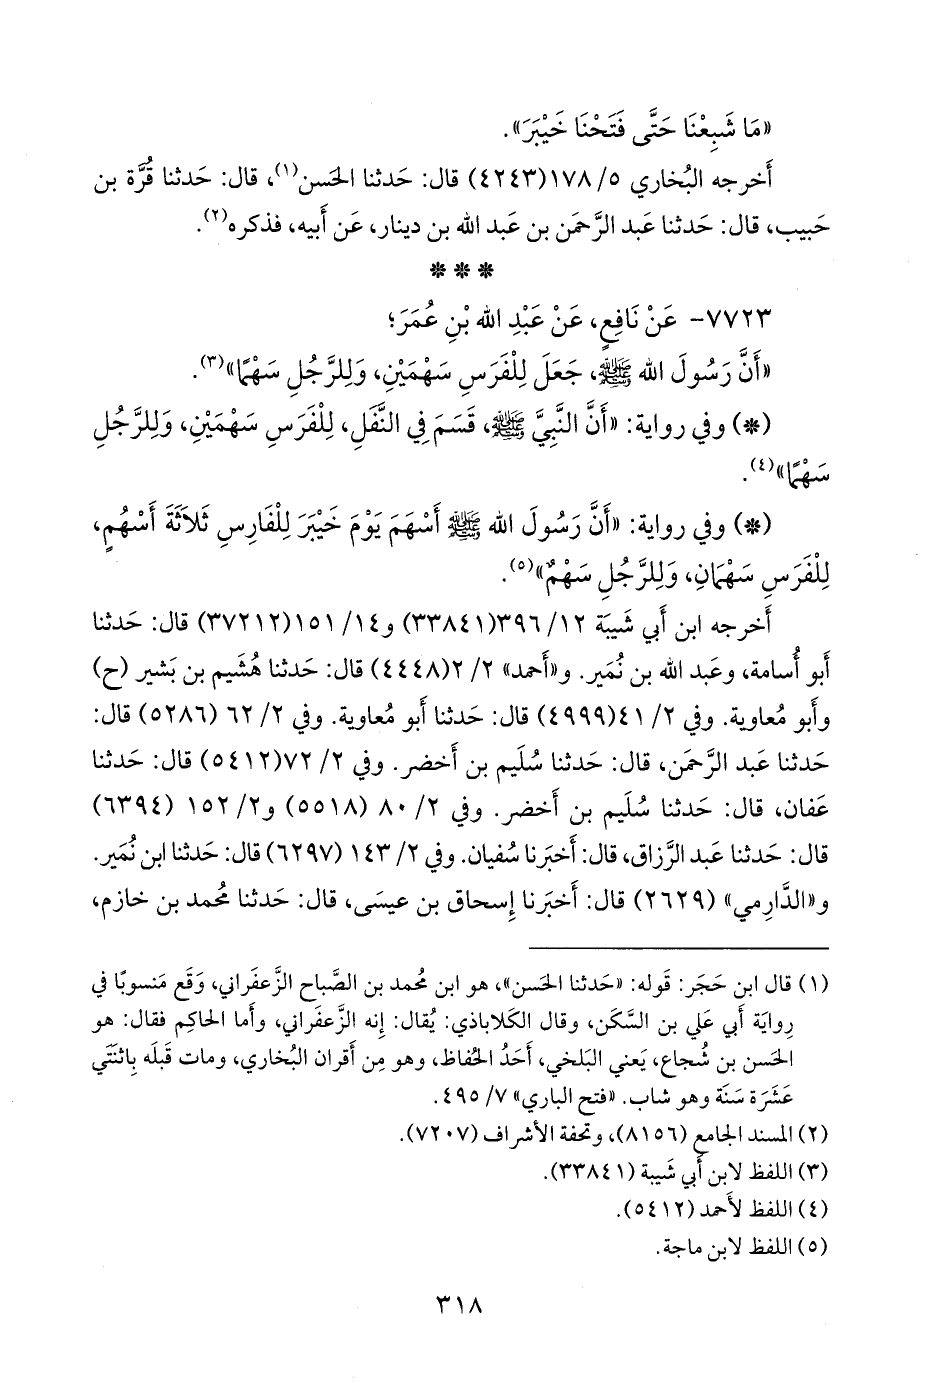 «مَا شَبِعْنَا حَتَّى فَتَحْنَا خَيْبَرَ».
أَخرجه البُخاري ٥/ ١٧٨(٤٢٤٣) قال: حَدثنا الحَسن(١)، قال: حَدثنا قُرَّة بن
حَبيب، قال: حَدثنا عَبد الرَّحمَن بن عَبد الله بن دينار، عَن أَبيه، فذكره(٢).
***
٧٧٢٣- عَنْ نَافِعٍ، عَنْ عَبْدِ الله بْنِ عُمَرَ؛
«أَنَّ رَسُولَ الله ﷺ، جَعَلَ لِلْفَرَسِ سَهْمَيْنِ، وَلِلرَّجُلِ سَهْمًا»(٣).
(*) وفي رواية: «أَنَّ النَّبِيَّ ﷺ، قَسَمَ فِي النَّفَلِ، لِلْفَرَسِ سَهْمَيْنِ، وَلِلرَّجُلِ
سَهْمًا»(٤).
(*) وفي رواية: «أَنَّ رَسُولَ الله ﷺ أَسْهَمَ يَوْمَ خَيْبَرَ لِلْفَارِسِ ثَلاَثَةَ أَسْهُمٍ،
لِلْفَرَسِ سَهْمَانِ، وَلِلرَّجُلِ سَهْمٌ»(٥).
أَخرجه ابن أَبي شَيبَة ١٢/ ٣٩٦(٣٣٨٤١) و١٤/ ١٥١(٣٧٢١٢) قال: حَدثنا
أَبو أُسامة، وعَبد الله بن نُمَير. و«أَحمد» ٢/ ٢(٤٤٤٨) قال: حَدثنا هُشَيم بن بَشير (ح)
وأَبو مُعاوية. وفي ٢/ ٤١(٤٩٩٩) قال: حَدثنا أَبو مُعاوية. وفي ٢/ ٦٢ (٥٢٨٦) قال:
حَدثنا عَبد الرَّحمَن، قال: حَدثنا سُلَيم بن أَخضر. وفي ٢/ ٧٢(٥٤١٢) قال: حَدثنا
عَفان، قال: حَدثنا سُلَيم بن أَخضر. وفي ٢/ ٨٠ (٥٥١٨) و٢/ ١٥٢ (٦٣٩٤)
قال: حَدثنا عَبد الرَّزاق، قال: أَخبَرنا سُفيان. وفي ٢/ ١٤٣ (٦٢٩٧) قال: حَدثنا ابن نُمَير.
و«الدَّارِمي» (٢٦٢٩) قال: أَخبَرنا إِسحاق بن عيسَى، قال: حَدثنا مُحمد بن خازم،
(١) قال ابن حَجَر: قَوله: «حَدثنا الحَسن»، هو ابن مُحمد بن الصَّباح الزَّعفَراني، وَقَع مَنسوبًا في
رِوايَة أَبي عَلي بن السَّكَن، وقال الكَلاباذي: يُقال: إِنه الزَّعفَراني، وأَما الحاكِم فقال: هو
الحَسن بن شُجاع، يَعني البَلخي، أَحَدُ الحُفاظ، وهو مِن أَقران البُخاري، ومات قَبلَه بِاثنَتَي
عَشَرَة سَنَة وهو شاب. «فتح الباري» ٧/ ٤٩٥.
(٢) المسند الجامع (٨١٥٦)، وتحفة الأشراف (٧٢٠٧).
(٣) اللفظ لابن أَبي شَيبة (٣٣٨٤١).
(٤) اللفظ لأَحمد (٥٤١٢).
(٥) اللفظ لابن ماجة.
٣١٨